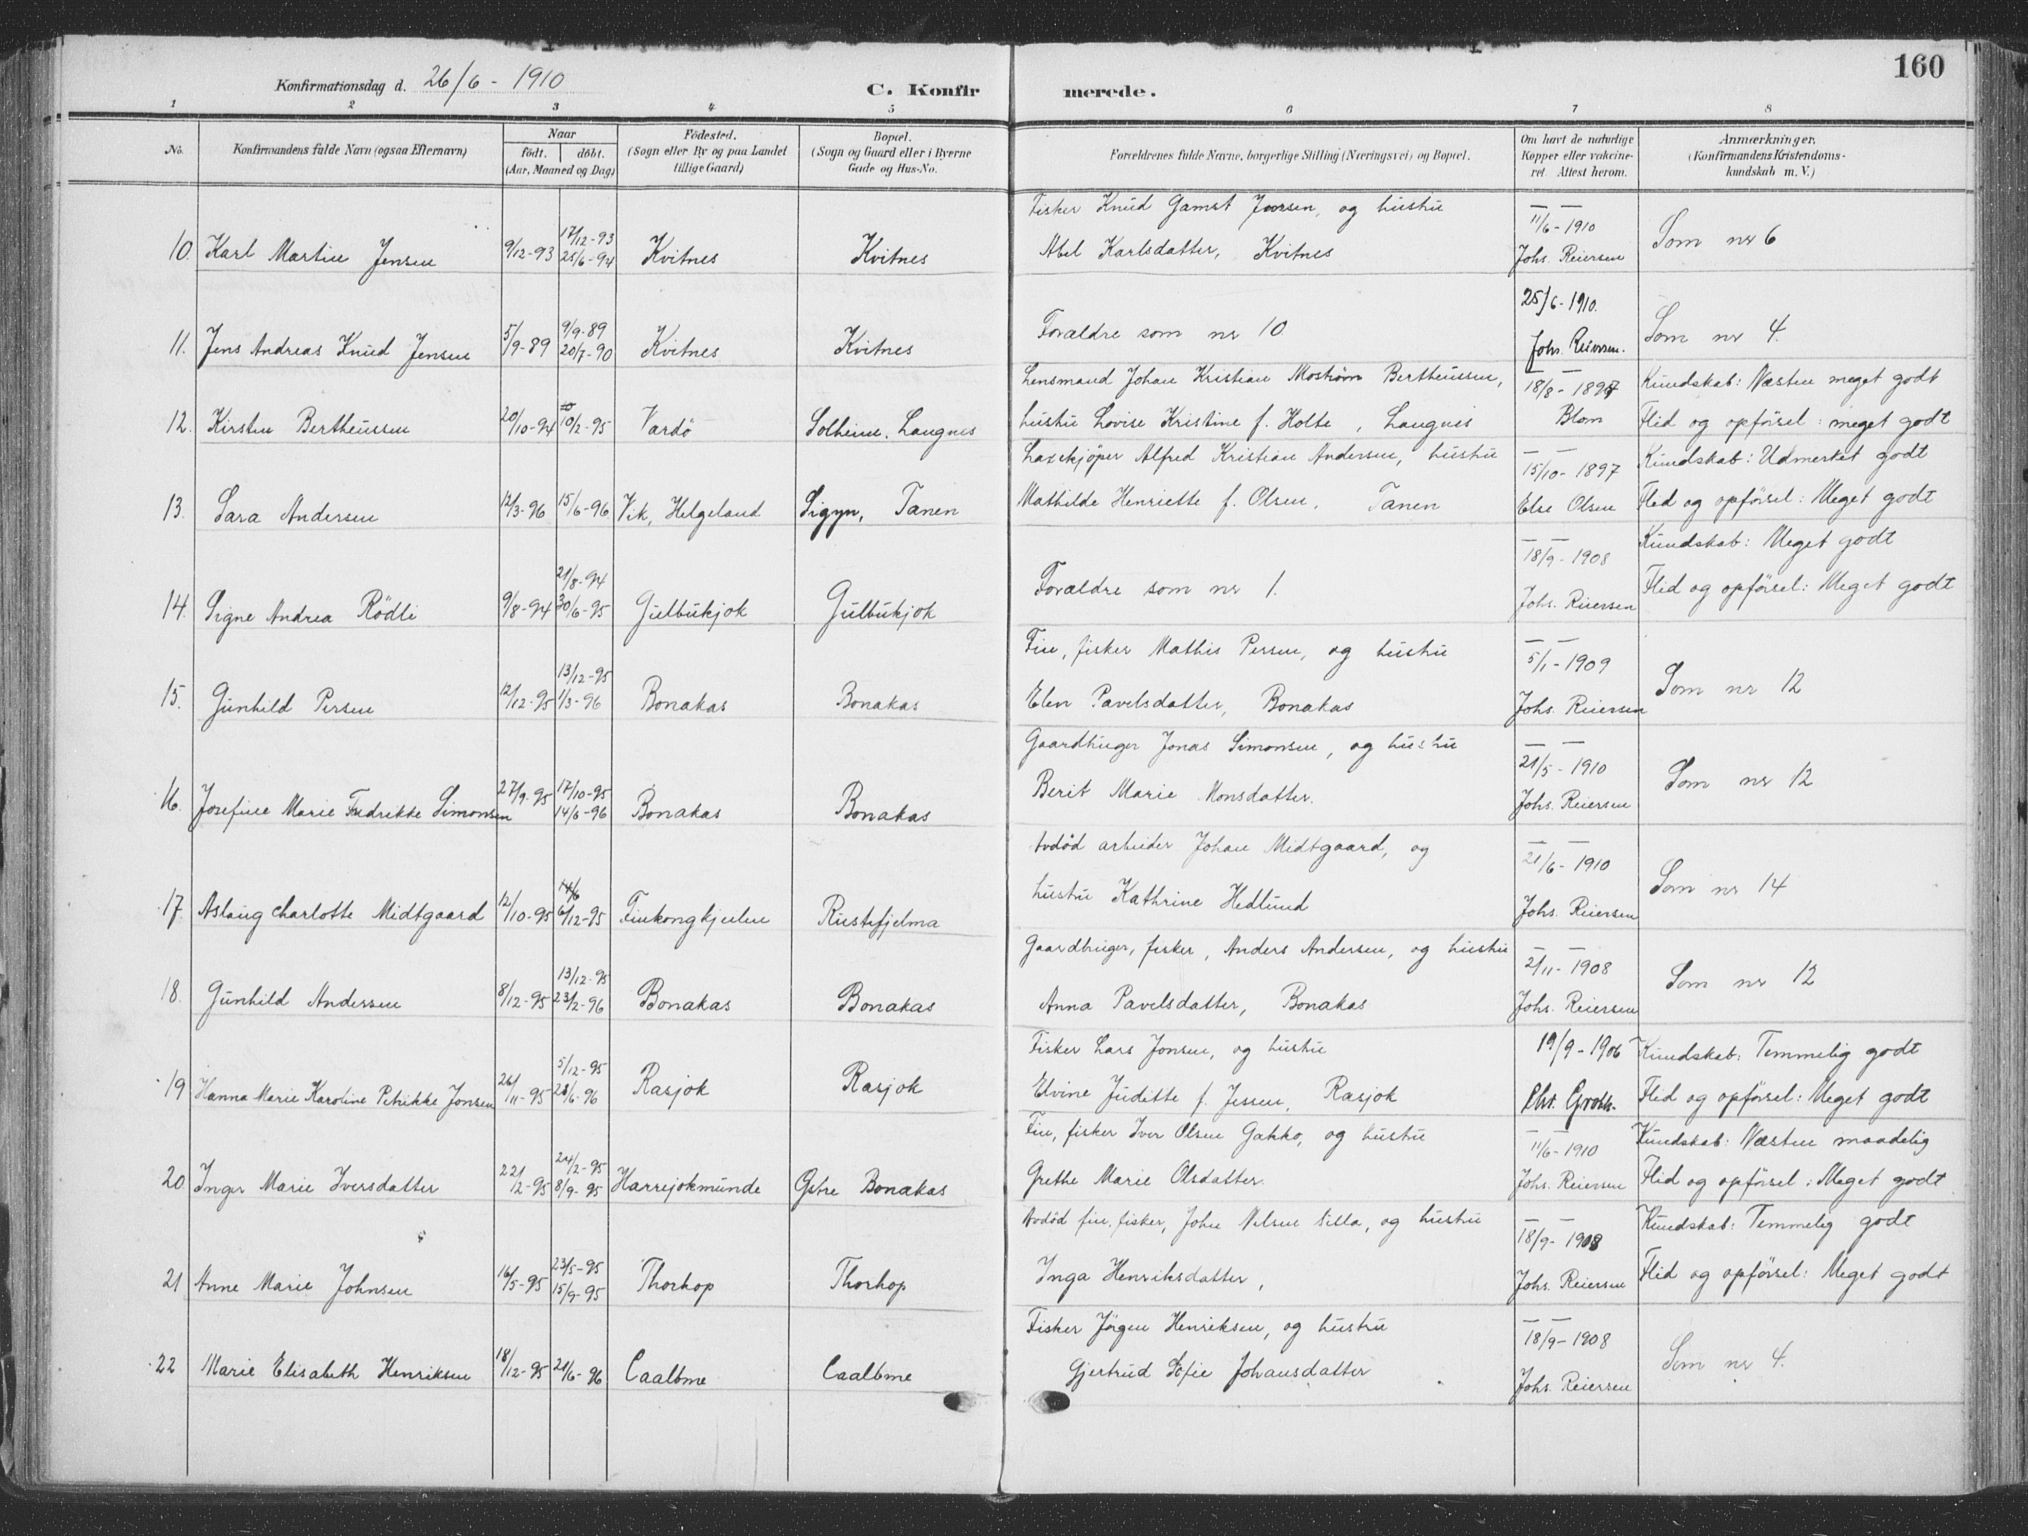 160
Konfirmationsdag d. 26/6 - 1910
C. Konfir merede.
1 2 3 4 5 6 7 8
No. Konfirmandens fulde Navn (ogsaa Efternavn) Naar födt. döbt. (Aar, Maaned og Dag) Födested. (Sogn eller By og paa Landet tillige Gaard) Bopæl. (Sogn og Gaard eller i Byerne Gade og Hus-No. Forældrenes fulde Navne, borgerlige Stilling (Næringsvei) og Bopæl. Om havt de naturlige Kopper eller vakcineret. Attest herom. Anmærkninger. (Konfirmandens Kristendomskundskab m. V.)
Fisker Knud Gamst Jensen, og hustru
11/6 - 1910
17/12-93
10 Karl Martin Jensen 9/12-93 25/6-94 Kvitnes Kvitnes Abel Karlsdatter, Kvitnes Johs. Reiersen Som nr 6
25/6-1910.
9/9-89
11. Jens Andreas Knud Jensen 5/9-89 20/7-90 Kvitnes Kvitnes Forældre som nr 10 Johs. Reiersen. Som nr 4.
Lensmand Johan Kristian Mostrøm Bertheussen, 18/8-1897 Kundskab: Næsten meget godt
12. Kirsten Bertheussen 20/10-94 10/2-95 Vardö Solheim, Langnes hustru Lovise Kristine f. Holte, Langnes Blom Flid og opförsel: meget godt
Laxekjöper Alfred Kristian Andersen, hustru 15/10-1897 Kundskab: Udmerket godt
13. Sara Andersen 12/3-96 15/6-96 Vik, Helgeland Sigyn, Tanen Mathilde Henriette f. Olsen, Tanen Else Olsen Flid og opförsel: Meget godt
21/8-94 18/9-1908 Kundskab: Meget godt
14. Signe Andrea Rödli 9/8-94 30/6-95 Gulbukjok Gulbukjok Forældre som nr 1. Johs. Reiersen Flid og opförsel: Meget godt
13/12-95 Fin, fisker Mathis Persen, og hustru 5/1-1909
15. Gunhild Persen 12/12-95 1/3-96 Bonakas Bonakas Elen Pavelsdatter, Bonakas Johs. Reiersen Som nr 12
17/10-95 Gaardbruger Jonas Simonsen, og hustru 21/5-1910
16. Josefine Marie Fredrikke Simonsen 27/9-95 14/6-96 Bonakas Bonakas Berit Marie Monsdatter. Johs. Reiersen Som nr 12
14/6 Avdöd arbeider Johan Midtgaard, og 21/6-1910
17. Aslaug Charlotte Midtgaard 12/10-95 6/12-95 Finkongkjeilen Rustefjelma hustru Kathrine Hedlund Johs. Reiersen Som nr 14
13/12-95 Gaardbruger, fisker, Anders Andersen, og hustru 2/11-1908
18. Gunhild Andersen 8/12-95 23/2-96 Bonakas Bonakas Anna Pavelsdatter, Bonakas Johs. Reiersen Som nr 12
5/12-95 Fisker Lars Jonsen, og hustru 19/9-1906 Kundskab: Temmelig godt
19 Hanna Marie Karoline Petrikke Jonsen 26/11-95 Rasjok Rasjok Elvine Juditte f. Jessen, Rasjok Chr. Groth. Flid og opförsel: Meget godt
24/2-95 Fin, fisker Iver Olsen Gakko, og hustru 11/6-1910 Kundskab: Næsten maadelig
20 Inger Marie Iversdatter 22/2-95 8/9-95 Harrejokmunde Östre Bonakas Grethe Marie Olsdatter. Johs. Reiersen Flid og opförsel: Meget godt
23/5-95 Avdöd fin, fisker, John Nilsen Silla, og hustru 18/9-1908 Kundskab: Temmelig godt
21 Anne Marie Johnsen 16/5-95 15/9-95 Thorhop Thorhop Inga Henriksdatter, Johs. Reiersen Flid og opförsel: Meget godt
Fisker Jörgen Henriksen, og hustru 18/9-1908
22 Marie Elisabeth Henriksen 18/12-95 21/6-96 Caalbme Caalbme Gjertrud Sofie Johansdatter Johs. Reiersen Som nr 4.